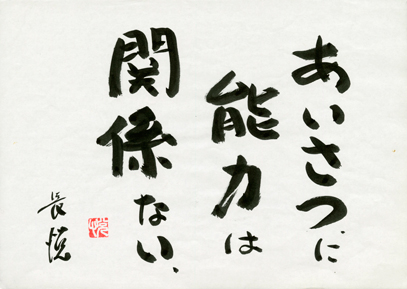 あいさつに
能力は
関係ない、
長悦